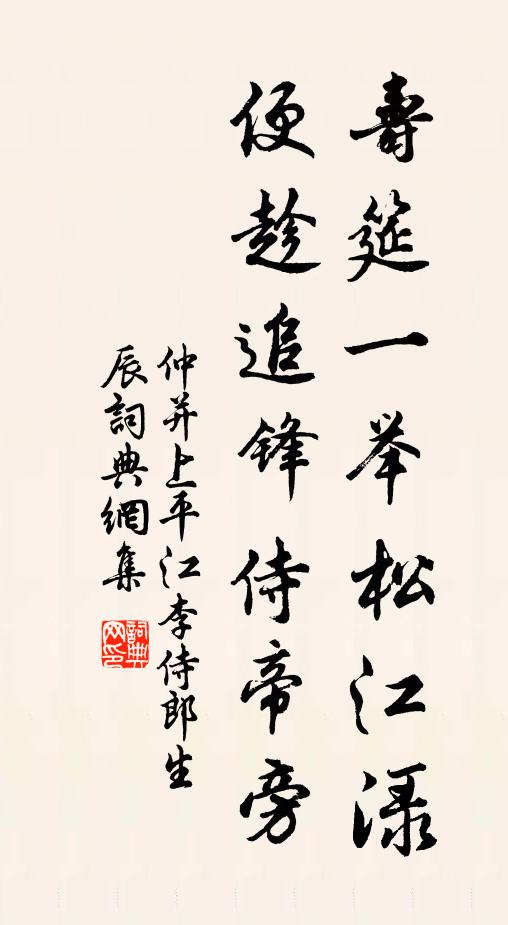 壽筵一举松江渌
便趁追锋侍帝旁
仲并上平江李侍郎生
辰詞典網集
詞典
网印